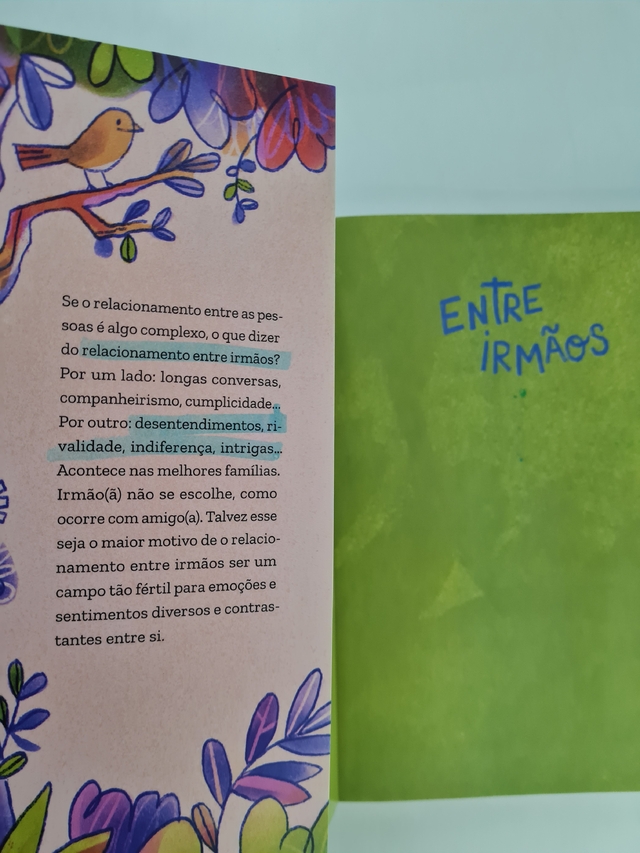 Se o relacionamento entre as pes-
soas é algo complexo, o que dizer
do relacionamento entre irmãos?
Por um lado: longas conversas,
companheirismo, cumplicidade...
Por outro: desentendimentos, ri-
validade, indiferença, intrigas...
Acontece nas melhores famílias.
Irmão(ã) não se escolhe, como
ocorre com amigo(a). Talvez esse
seja o maior motivo de o relacio-
namento entre irmãos ser um
campo tão fértil para emoções e
sentimentos diversos e contras-
tantes entre si.
ENTRE
IRMÃOS